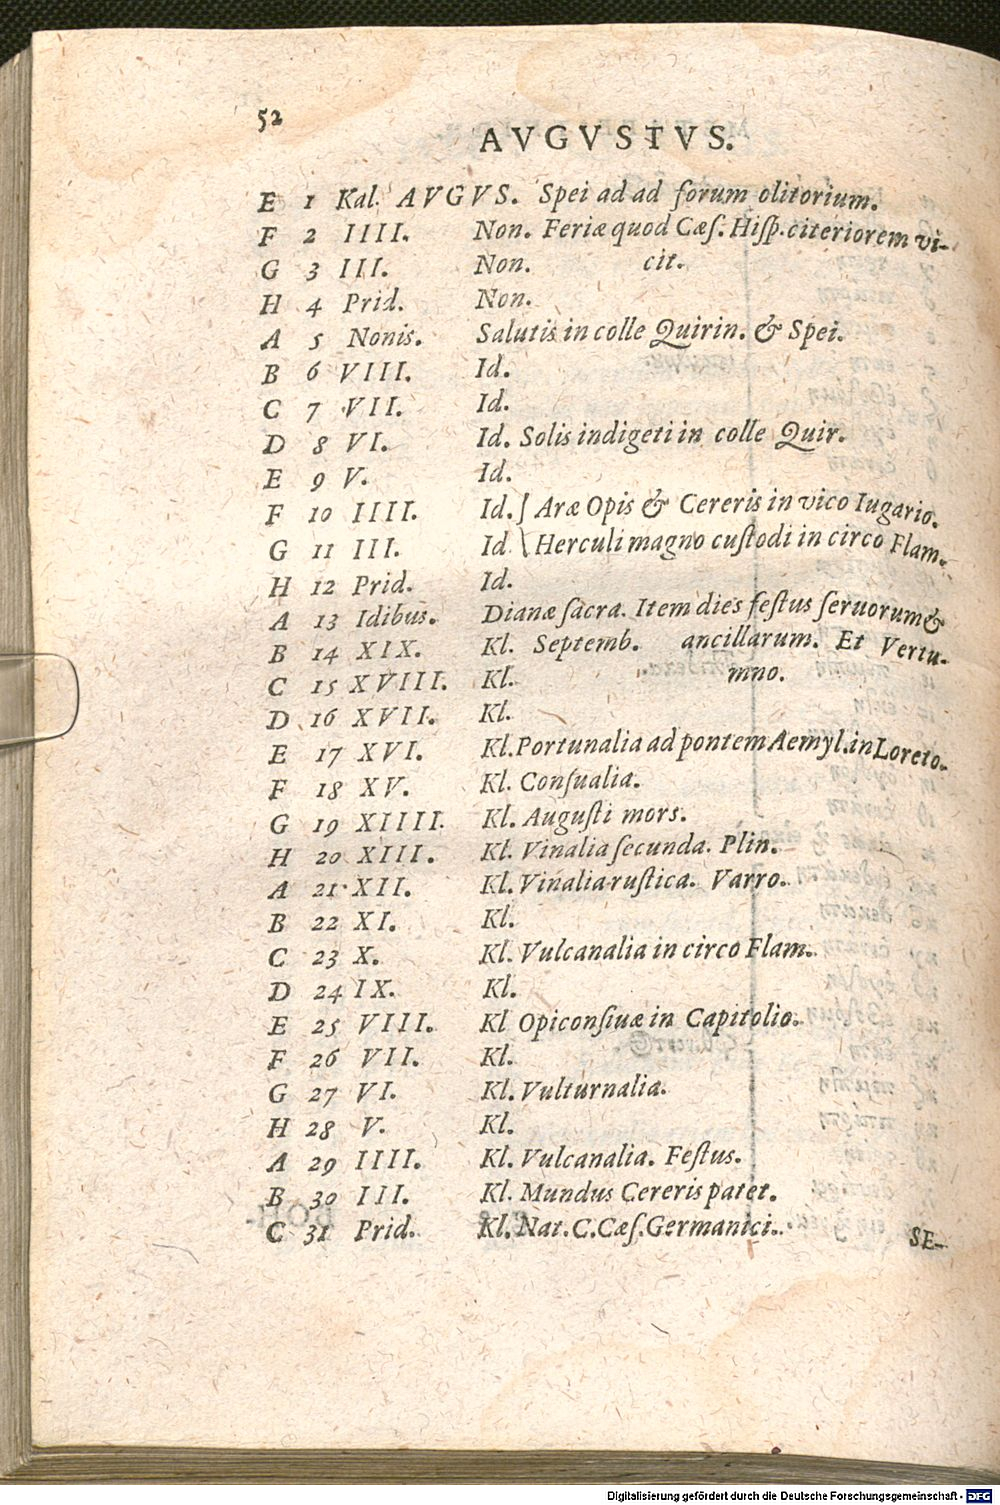 52
AVGVSTVS.
E 1 Kal. AVGVS. Spei ad ad forum olitorium.
F 2 IIII. Non. Feriæ quod Cæſ. Hiſp. citeriorem vi-
G 3 III. Non. cit.
H 4 Prid. Non.
A 5 Nonis. Salutis in colle Quirin. & Spei.
B 6 VIII. Id.
C 7 VII. Id.
D 8 VI. Id. Solis indigeti in colle Quir.
E 9 V. Id.
F 10 IIII. Id. ∫ Aræ Opis & Cereris in vico Iugario.
G 11 III. Id \ Herculi magno cuſtodi in circo Flam.
H 12 Prid. Id.
A 13 Idibus. Dianæ ſacra. Item dies feſtus ſeruorum &
B 14 XIX. Kl. Septemb. ancillarum. Et Vertu-
C 15 XVIII. Kl. mno.
D 16 XVII. Kl.
E 17 XVI. Kl. Portunalia ad pontem Aemyl. in Loreto.
F 18 XV. Kl. Conſualia.
G 19 XIIII. Kl. Auguſti mors.
H 20 XIII. Kl. Vinalia ſecunda. Plin.
A 21 XII. Kl. Vinalia ruſtica. Varro.
B 22 XI. Kl.
C 23 X. Kl. Vulcanalia in circo Flam.
D 24 IX. Kl.
E 25 VIII. Kl Opiconſiuæ in Capitolio.
F 26 VII. Kl.
G 27 VI. Kl. Vulturnalia.
H 28 V. Kl.
A 29 IIII. Kl. Vulcanalia. Feſtus.
B 30 III. Kl. Mundus Cereris patet.
C 31 Prid. Kl. Nat. C. Cæſ. Germanici.
SE-
Digitalisierung gefördert durch die Deutsche Forschungsgemeinschaft - DFG